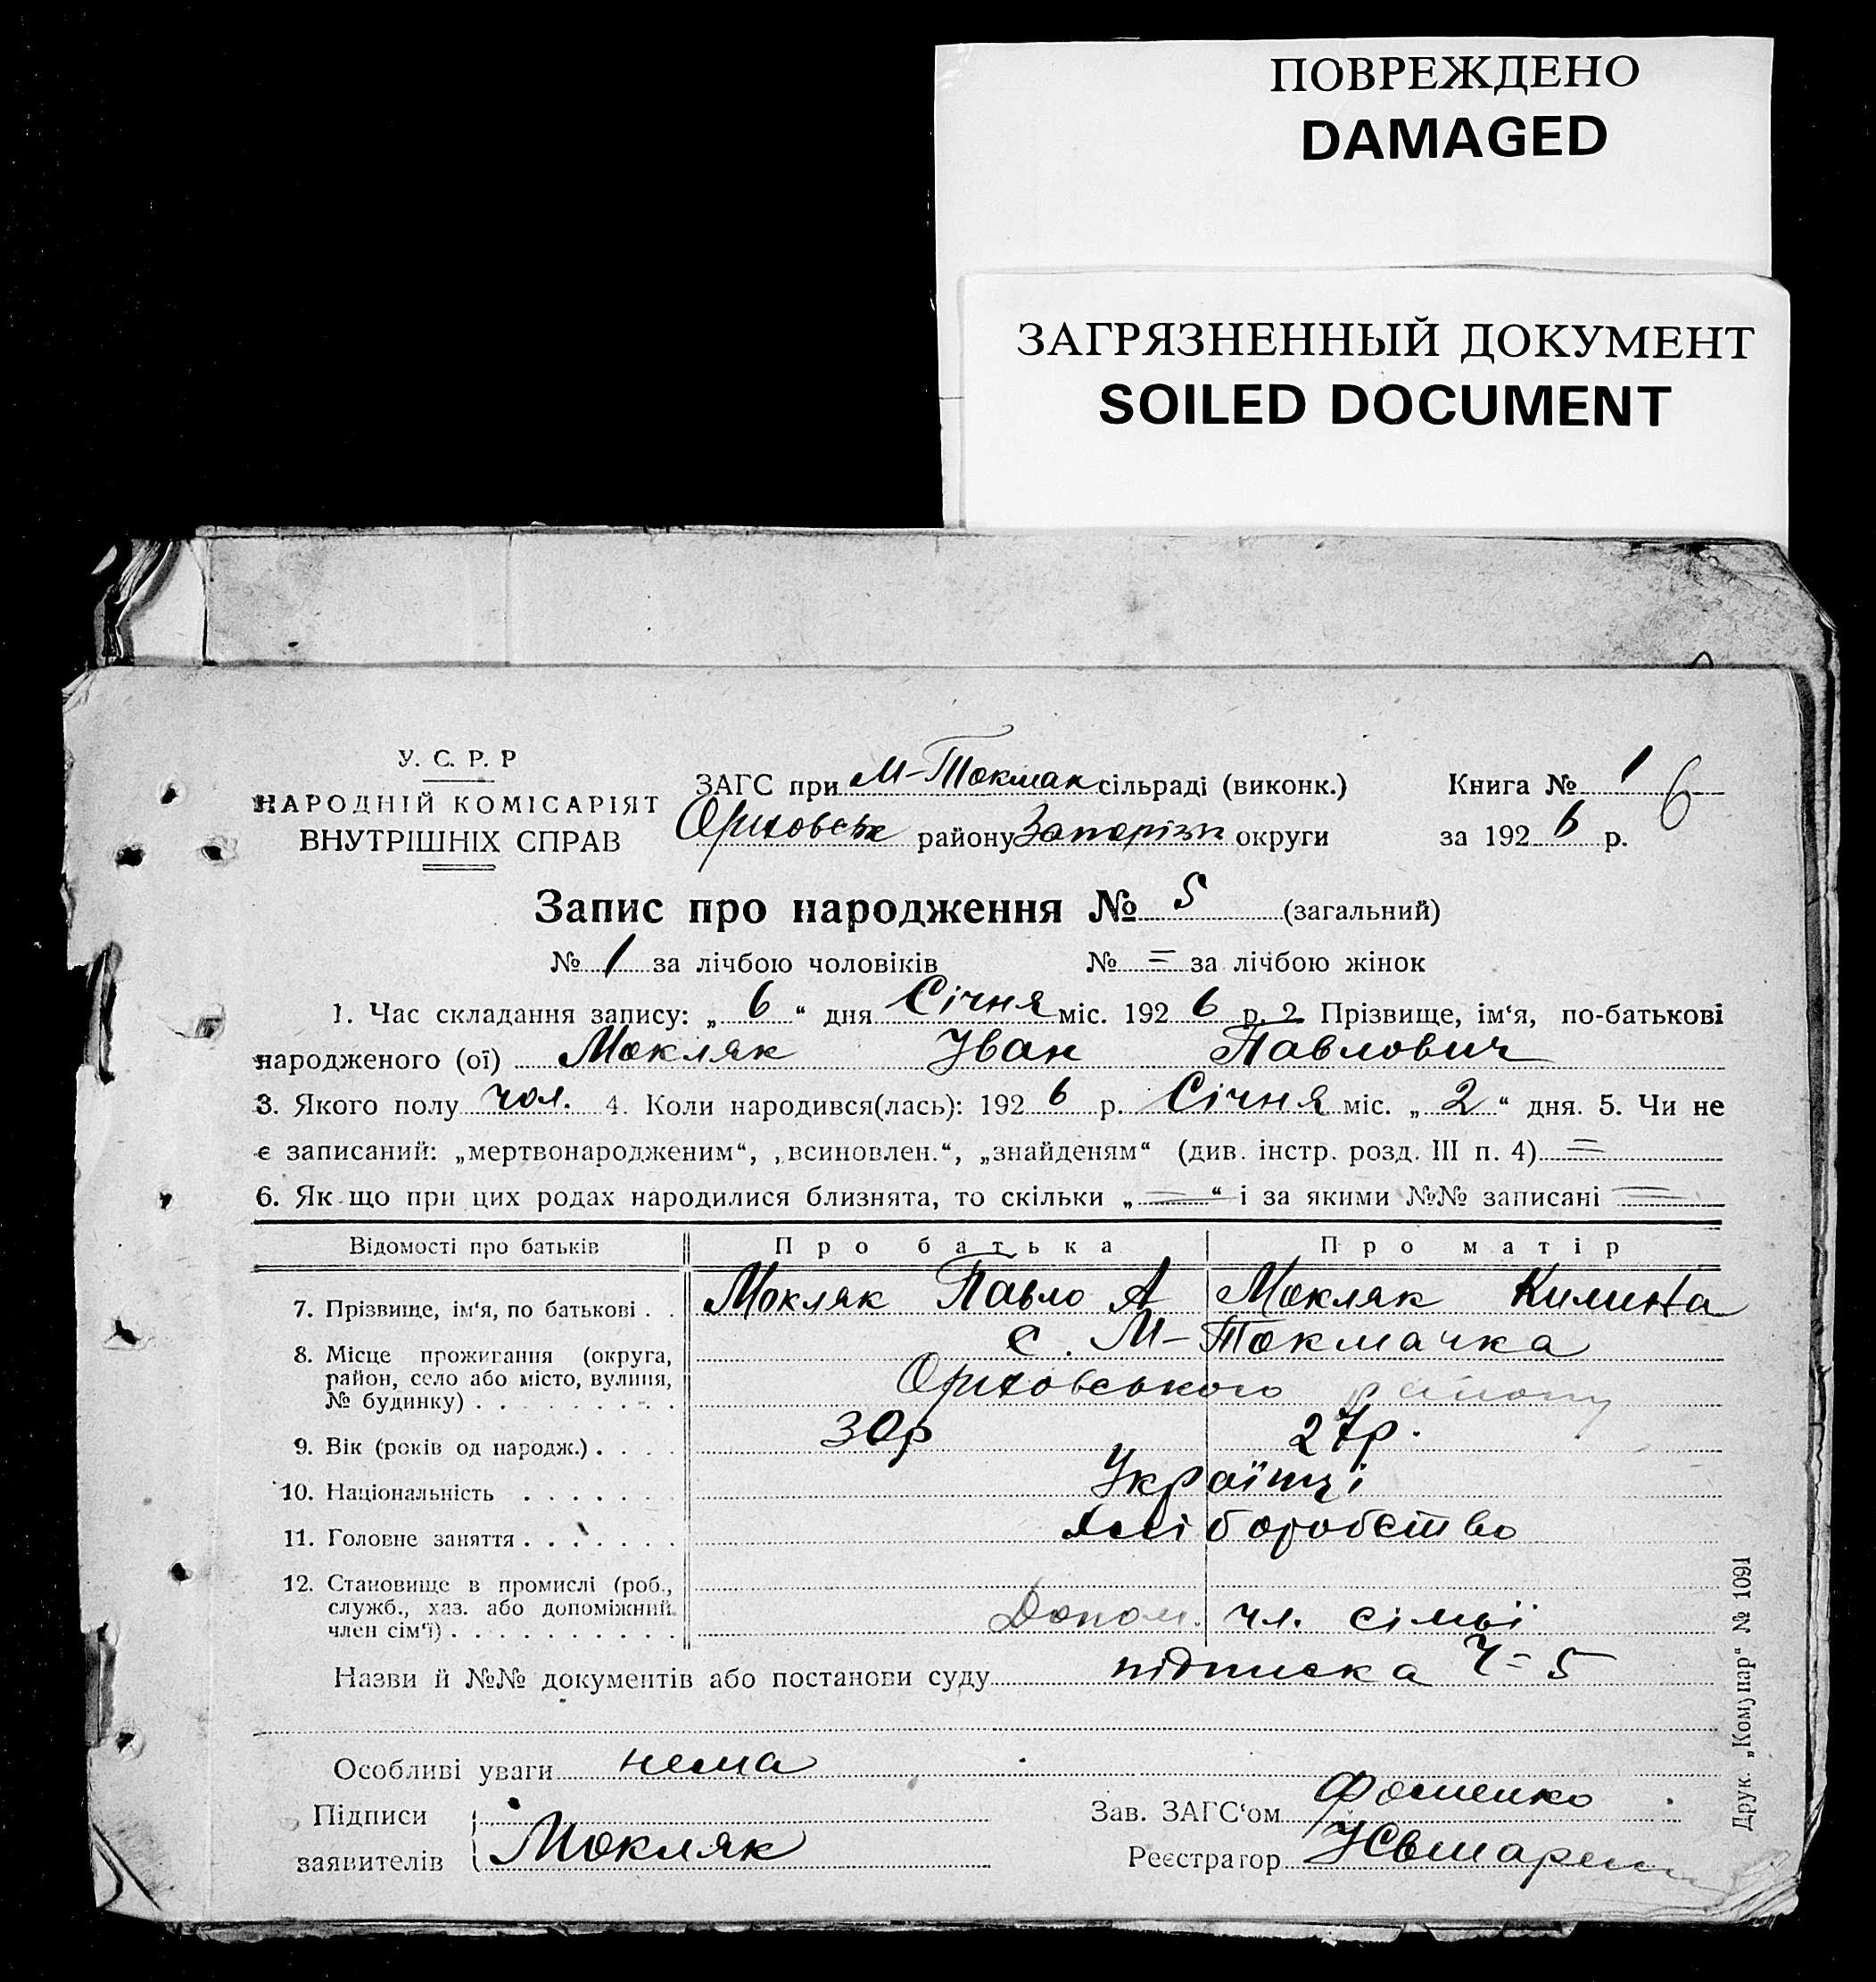 ПОВРЕЖДЕНО
DAMAGED
ЗАГРЯЗНЕННЫЙ ДОКУМЕНТ
SOILED DOCUMENT
У. С. Р. Р
НАРОДНІЙ КОМІСАРІЯТ
ВНУТРІШНІХ СПРАВ
ЗАГС при М-Токмак сільраді (виконк.)
Оріховськ району Запоріжк округи
Книга № 1
6
за 1926 р.
Запис про народження № 5 (загальний)
№ 1 за лічбою чоловіків № = за лічбою жінок
1. Час складання запису: „ 6 “ дня Січня міс. 1926 р. 2 Прізвище, ім‘я, по-батькові
народженого (ої) Мокляк Іван Павлович
3. Якого полу чол. 4. Коли народився(лась): 1926 р. Січня міс. „ 2 “ дня. 5. Чи не
є записаний: „мертвонародженим“, „всиновлен.“, „знайденям“ (див. інстр. розд. III п. 4) =
6. Як що при цих родах народилися близнята, то скільки „ = “ і за якими №№ записані =
Відомості про батьків Про батька Про матір
7. Прізвище, ім‘я, по батькові . . Мокляк Павло А Мокляк Килина
8. Місце проживання (округа,
район, село або місто, вулиця,
№ будинку) . . . . . . . . .
с. М-Токмачка
Оріховського району
9. Вік (років од народж.) . . . . 30р 27р.
10. Національність . . . . . . . Українці
11. Головне заняття . . . . . . . Хліборобство
12. Становище в промислі (роб.,
служб., хаз. або допоміжний
член сім‘ї) . . . . . . . . . .
Допом. чл. сімьї
Назви й №№ документів або постанови суду підписка Ч= 5
Особливі уваги нема
Підписи
заявителів
Мокляк
Зав. ЗАГС‘ом Фоменко
Реєстратор
Друк. „Комунар“ № 1091